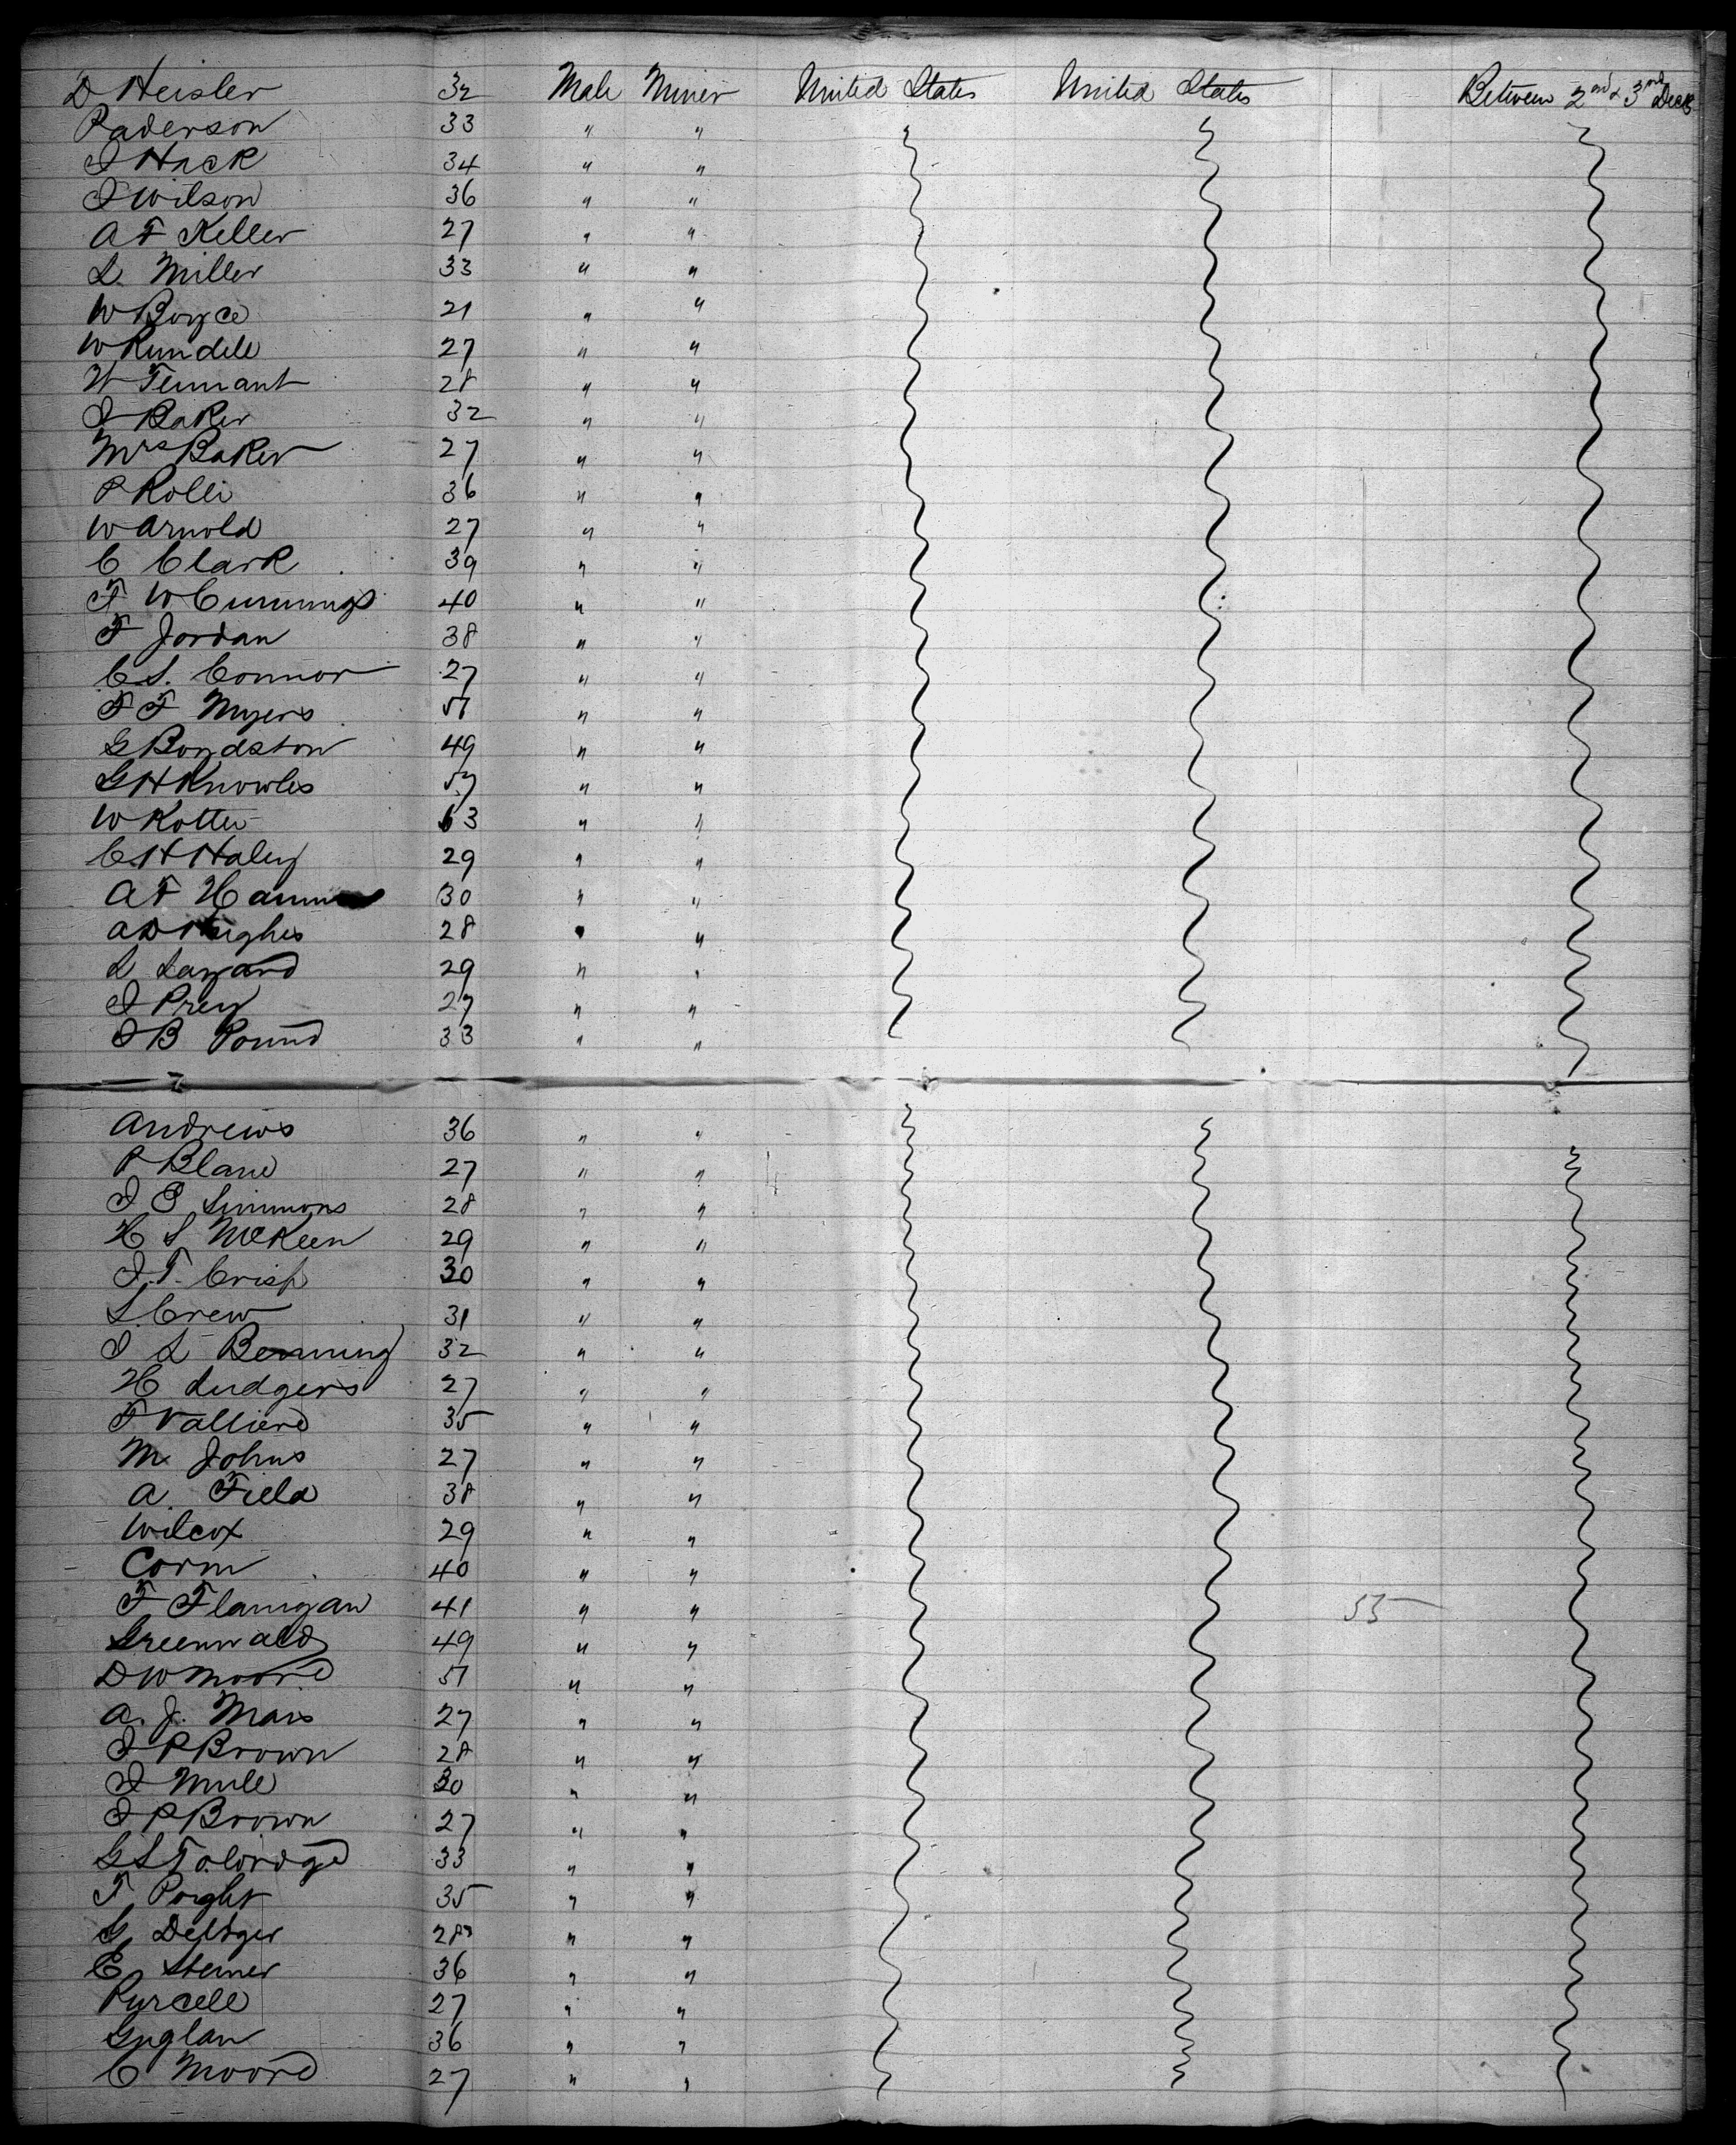 D Heisler 32 Male Miner United States United States Between 2nd & 3rd Deck
Paderson 33 " "
J Hack 34 " "
J Wilson 36 " "
A F Keller 27 " "
L. Miller 33 " "
W Boyce 21 " "
W Rundell 27 " "
H Tennant 28 " "
J Baker 32 " "
Mrs Baker 27 " "
P Rolli 36 " "
W Arnold 27 " "
C Clark 39 " "
F W Cummings 40 " "
F Jordan 38 " "
C S. Connor 27 " "
F F Myers 51 " "
G Boydston 49 " "
G H Knowles 57 " "
W Kotter 63 " "
C H Haley 29 " "
A F Hamm 30 " "
A D Hughes 28 " "
L Layard 29 " "
J Prey 27 " "
J B Pound 33 " "
Andrews 36 " "
P Blane 27 " "
J E Simmons 28 " "
H S McKeen 29 " "
J. T. Crisp 30 " "
S. Crew 31 " "
J L Benning 32 " "
H Ludgers 27 " "
F Valliere 35 " "
M Johns 27 " "
A. Field 38 " "
Wilcox 29 " "
Corm 40 " "
F Flanigan 41 " " 53
Greenwald 49 " "
D W Moore 51 " "
A. J. Mars 27 " "
J P Brown 28 " "
J Mull 30 " "
J P Brown 27 " "
G S 33 " "
F 35 " "
G 28 " "
E Sterner 36 " "
Purcell 27 " "
36 " "
C Moore 27 " "